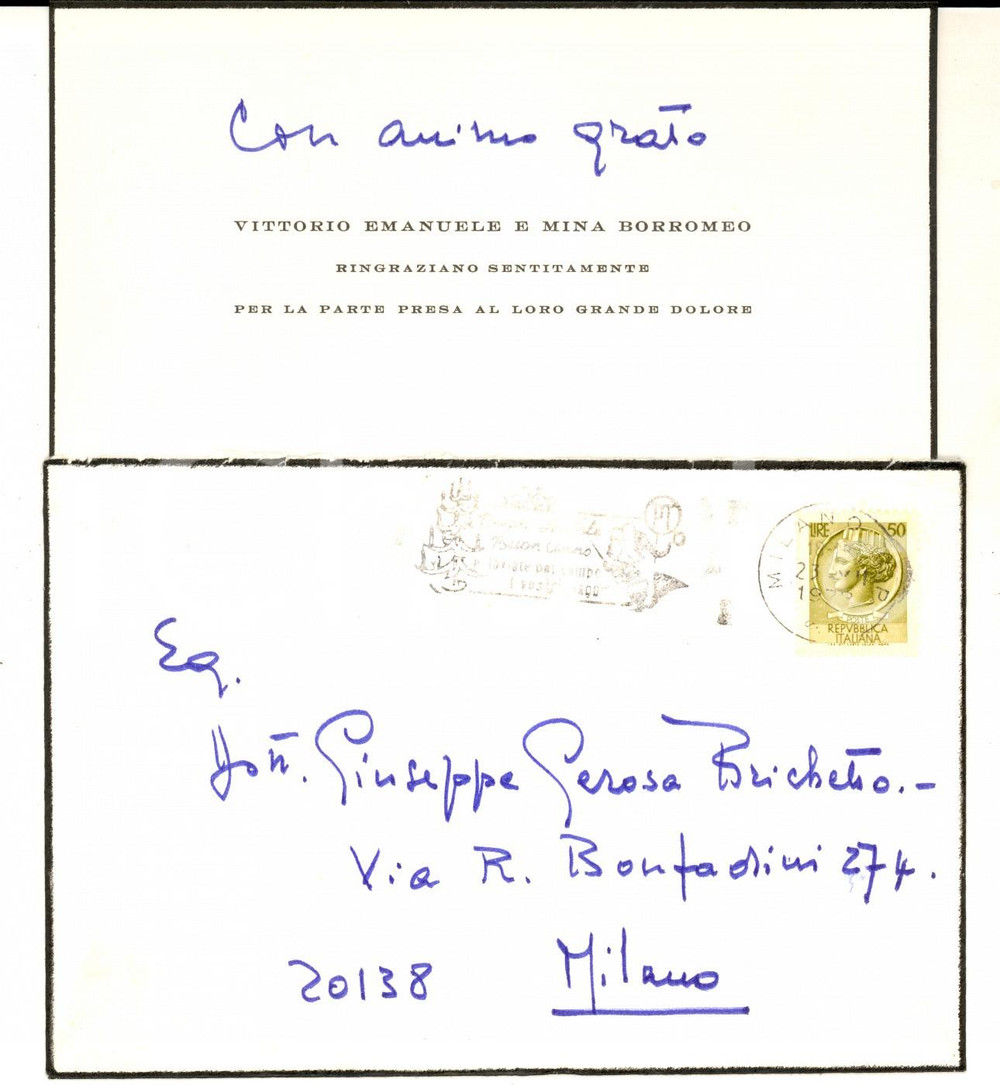 Con animo grato
VITTORIO EMANUELE E MINA BORROMEO
RINGRAZIANO SENTITAMENTE
PER LA PARTE PRESA AL LORO GRANDE DOLORE
Buon Anno
i vostri
MILANO
23
LIRE 50
POSTE
REPVBBLICA
ITALIANA
Eg.
Dott. Giuseppe Gerosa Brichetto.-
Via R. Bonfadini 274.
20138 Milano